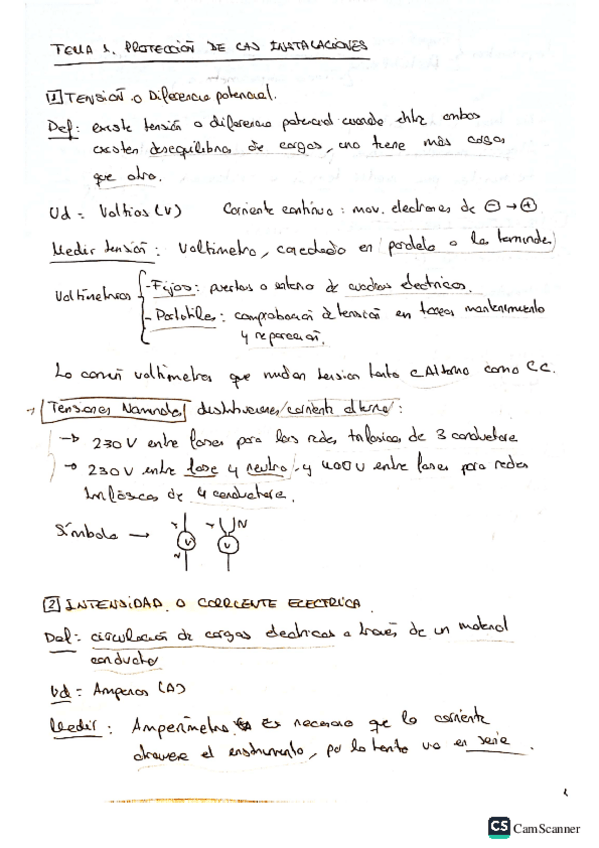 TEMA 1. PROTECCIÓN DE LAS INSTALACIONES
1 TENSIÓN O Diferencia potencial.
Def: existe tensión o diferencia potencial cuando entre ambos
existen desequilibrios de cargas, uno tiene más cargas
que otro.
Ud = Voltios (V) Corriente continua: mov. electrones de ⊖ → ⊕
Medir tensión: Voltimetro, conectado en paralelo a los terminales
Voltimetros
-Fijos: puertas o interior de cuadros electricos.
-Portatiles: comprobación de tensión en tareas mantenimiento
y reparación.
Lo común voltimetros que midan tension tanto c.Alterna como C.C.
→ Tensiones Nominales distribuciones/corriente alterna:
→ 230 V entre fases para las redes trifasicas de 3 conductores
→ 230 V entre fase y neutro, y 400V entre fases para redes
trifásicas de 4 conductores.
Símbolo →
N
V
N
V
2 INTENSIDAD O CORRIENTE ELECTRICA.
Def: circulación de cargas electricas a través de un material
conductor
Ud = Amperios (A)
Medir: Amperímetro Es necesario que la corriente
atraviese el instrumento, por lo tanto va en serie.
1
CS CamScanner